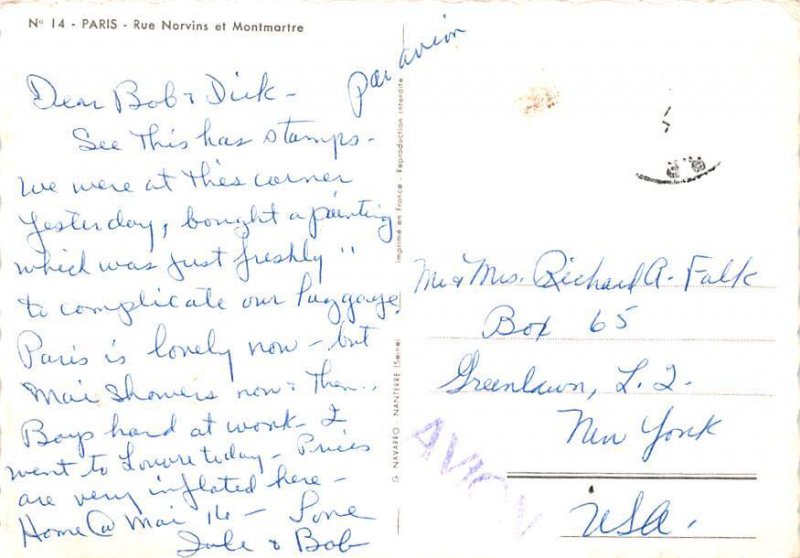 Nº 14 - PARIS - Rue Norvins et Montmartre
par avion
Dear Bob & Dick -
See This has stamps -
we were at this corner
yesterday, bought a painting
which was just freshly "
to complicate our luggage.
Paris is lovely now - but
Mai showers now & Then..
Boys hard at work - I
went to Louvre today - Prices
are very inflated here -
Home @ Mai 16 - Love
& Bob
G. NAVARRO - NANTERRE (Seine)
Imprimé en France - Reproduction interdite
Mr & Mrs. Richard A. Falk
Box 65
Greenlawn, L. I.
New York
USA.
AVION